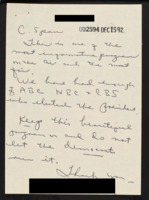 C. Span
002594 DEC 15 92
This is one of the
most important programs
on the air and the most
fair.
We have had enough
of ABC NBC & CBS
who elected the President.
Keep this beautiful
program and do not
let the democrats
ruin it.
Thank you -